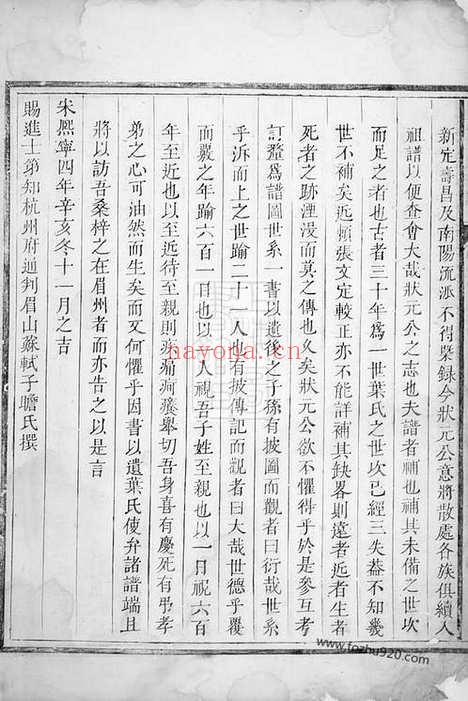 新定壽昌及南陽流派不得槩録今狀元公意將散處各族俱續入
祖譜以便查會大哉狀元公之志也夫譜者補也補其未備之世次
而足之者也古者三十年為一世葉氏之世次已經三失葢不知幾
世不補矣近頼張文定較正亦不能詳補其缺畧則遠者近者生者
死者之跡湮没而莫之傳也久矣狀元公欲不懼得乎於是參互考
訂釐爲譜圖世系一書以遺後之子孫有披圖而觀者曰衍哉世系
乎泝而上之世踰二十一人人有披傳記而觀者曰大哉世德乎覆
而覈之年踰六百一日也以一人視吾子姓至親也以一日視六百
年至近也以至近待至親則痛痾癢舉切吾身喜有慶死有弔孝
弟之心可油然而生矣而又何懼乎因書以遺葉氏使弁諸譜端且
將以訪吾桑梓之在眉州者而亦告之以是言
宋熈寧四年辛亥冬十一月之吉
賜進士第知杭州府通判眉山蘇軾子瞻氏撰
nayona.cn
www.fozhu920.com